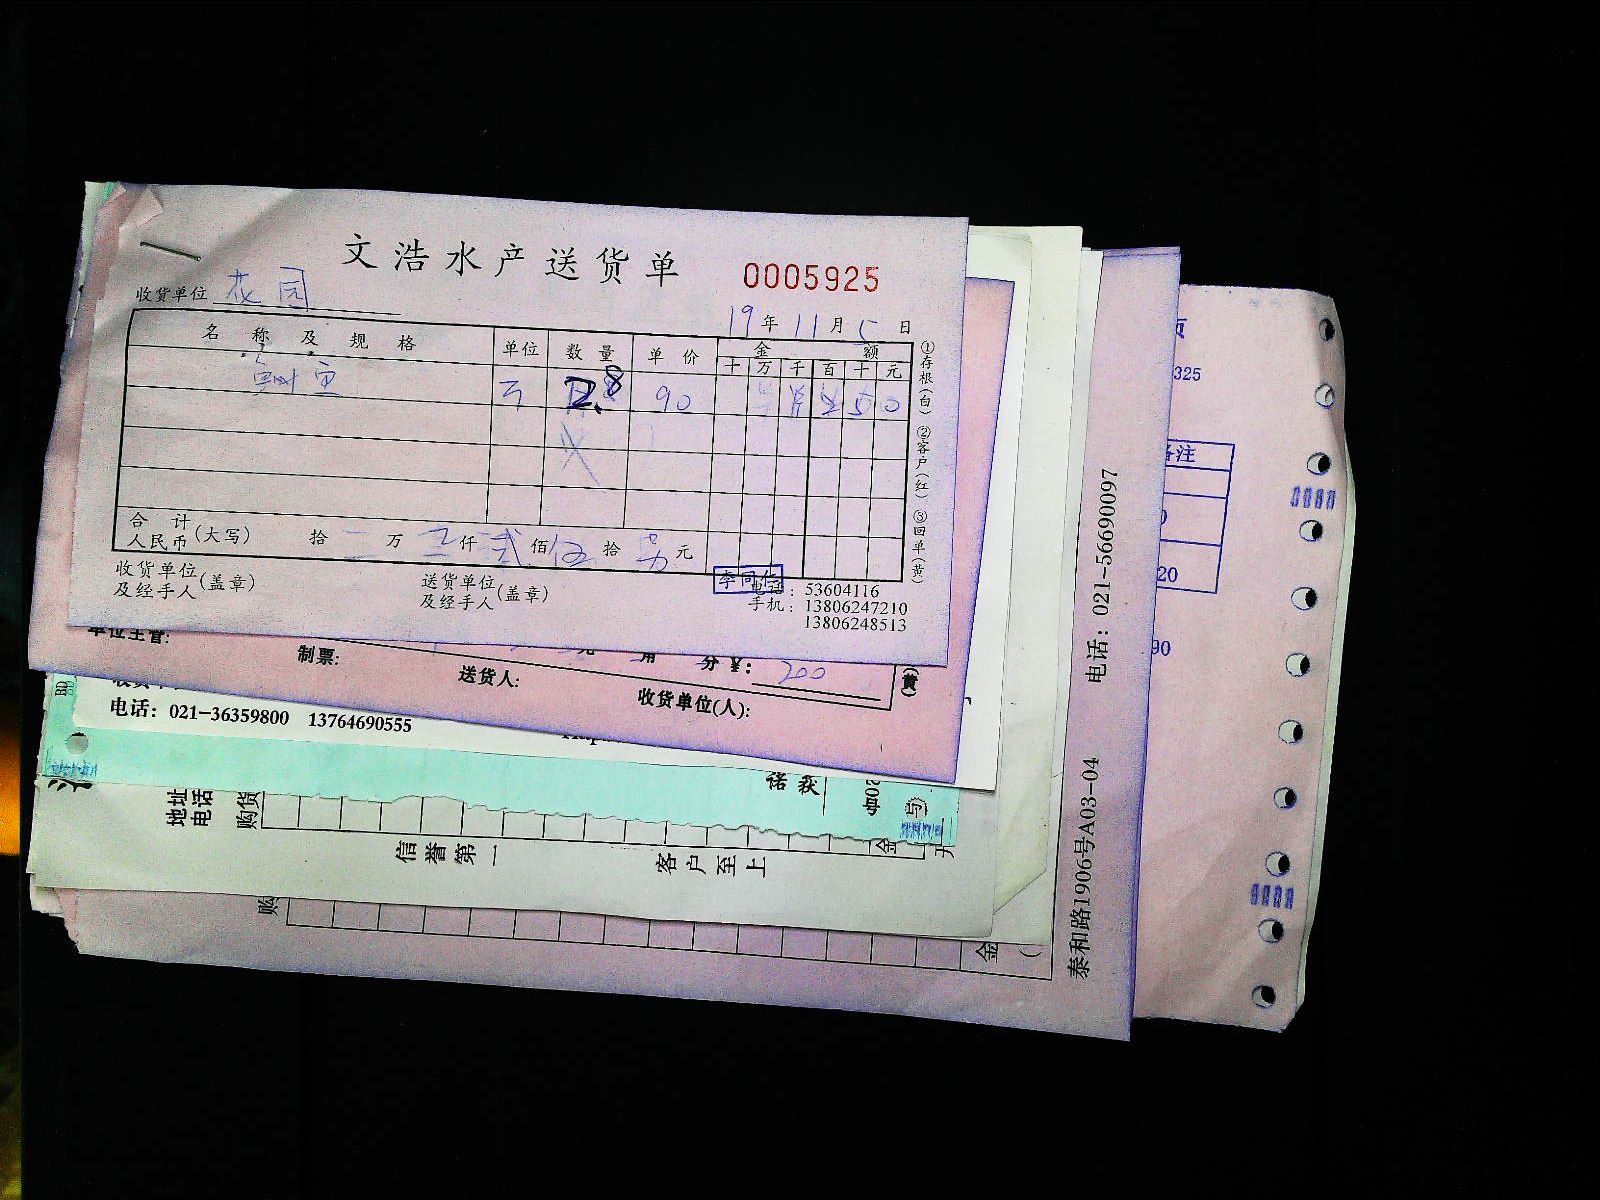 文浩水产送货单
0005925
收货单位 花园
19年11月5日
名称及规格 单位 数量 单价 金额
十 万 千 百 十 元
2.8 90 2 5 0
①存根(白) ②客户(红) ③回单(黄)
合计
人民币(大写) 拾 万 仟 贰佰 伍拾 元
收货单位
及经手人(盖章)
送货单位
及经手人(盖章)
李同仁
电话:53604116
手机:13806247210
13806248513
单位主管:
制票:
送货人:
收货单位(人):
元 角 分 ¥: 200
(黄)
电话: 021-36359800 13764690555
地址
电话
购货
信誉第一 客户至上
金
购
金
泰和路1906号A03-04 电话: 021-56690097
325
备注
20
90